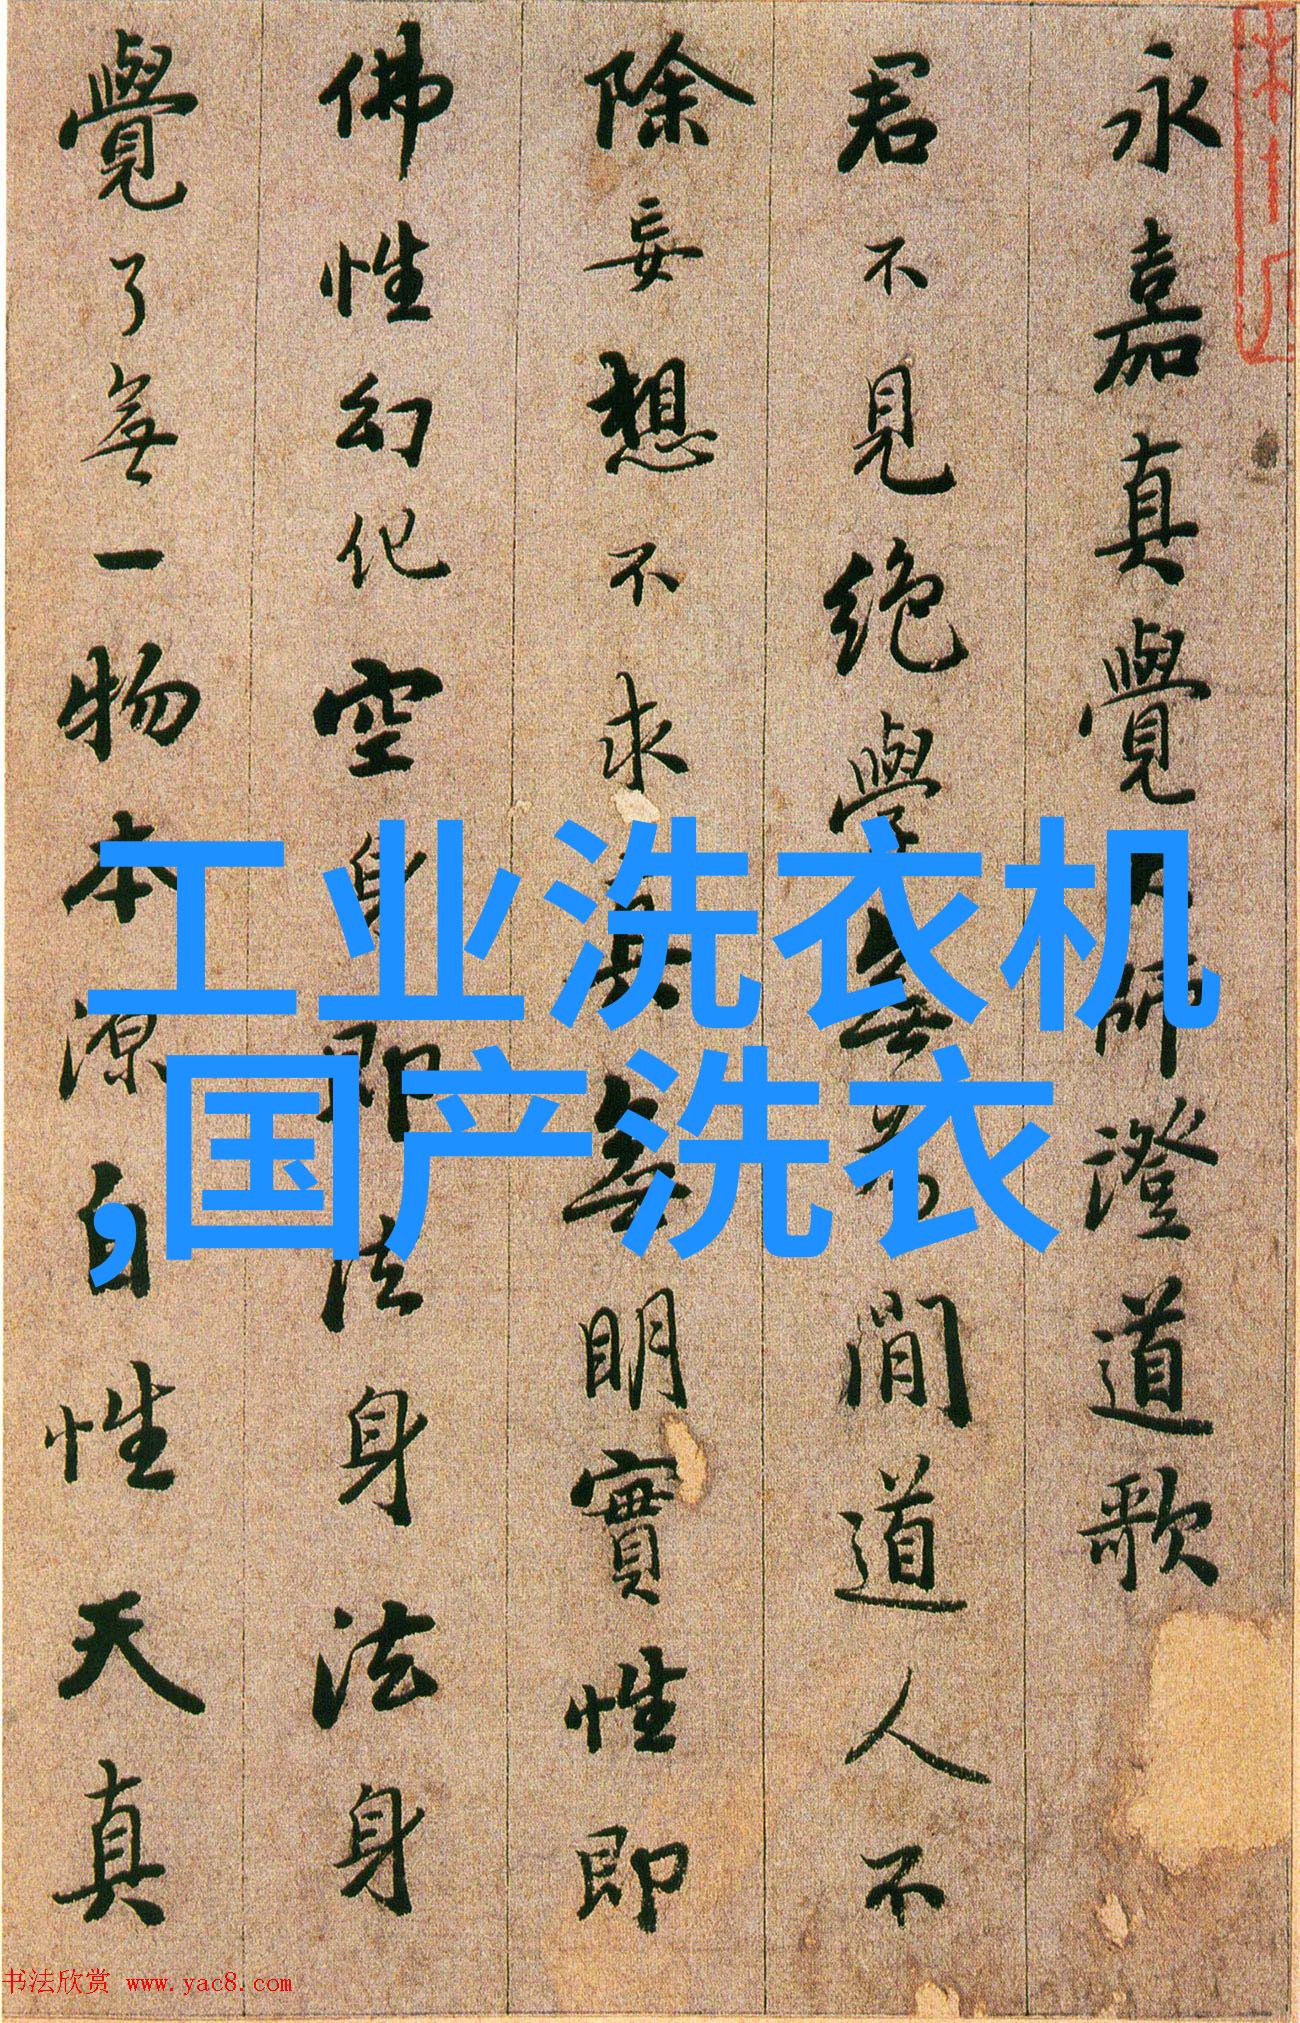 永嘉真覺大師澄道歌
君不見絕學無為閒道人不
除妄想不求真無明實性即
佛性幻化空身即法身法身
覺了無一物本源自性天真
工业洗衣机
,国产洗衣
书法欣赏 www.yac8.com